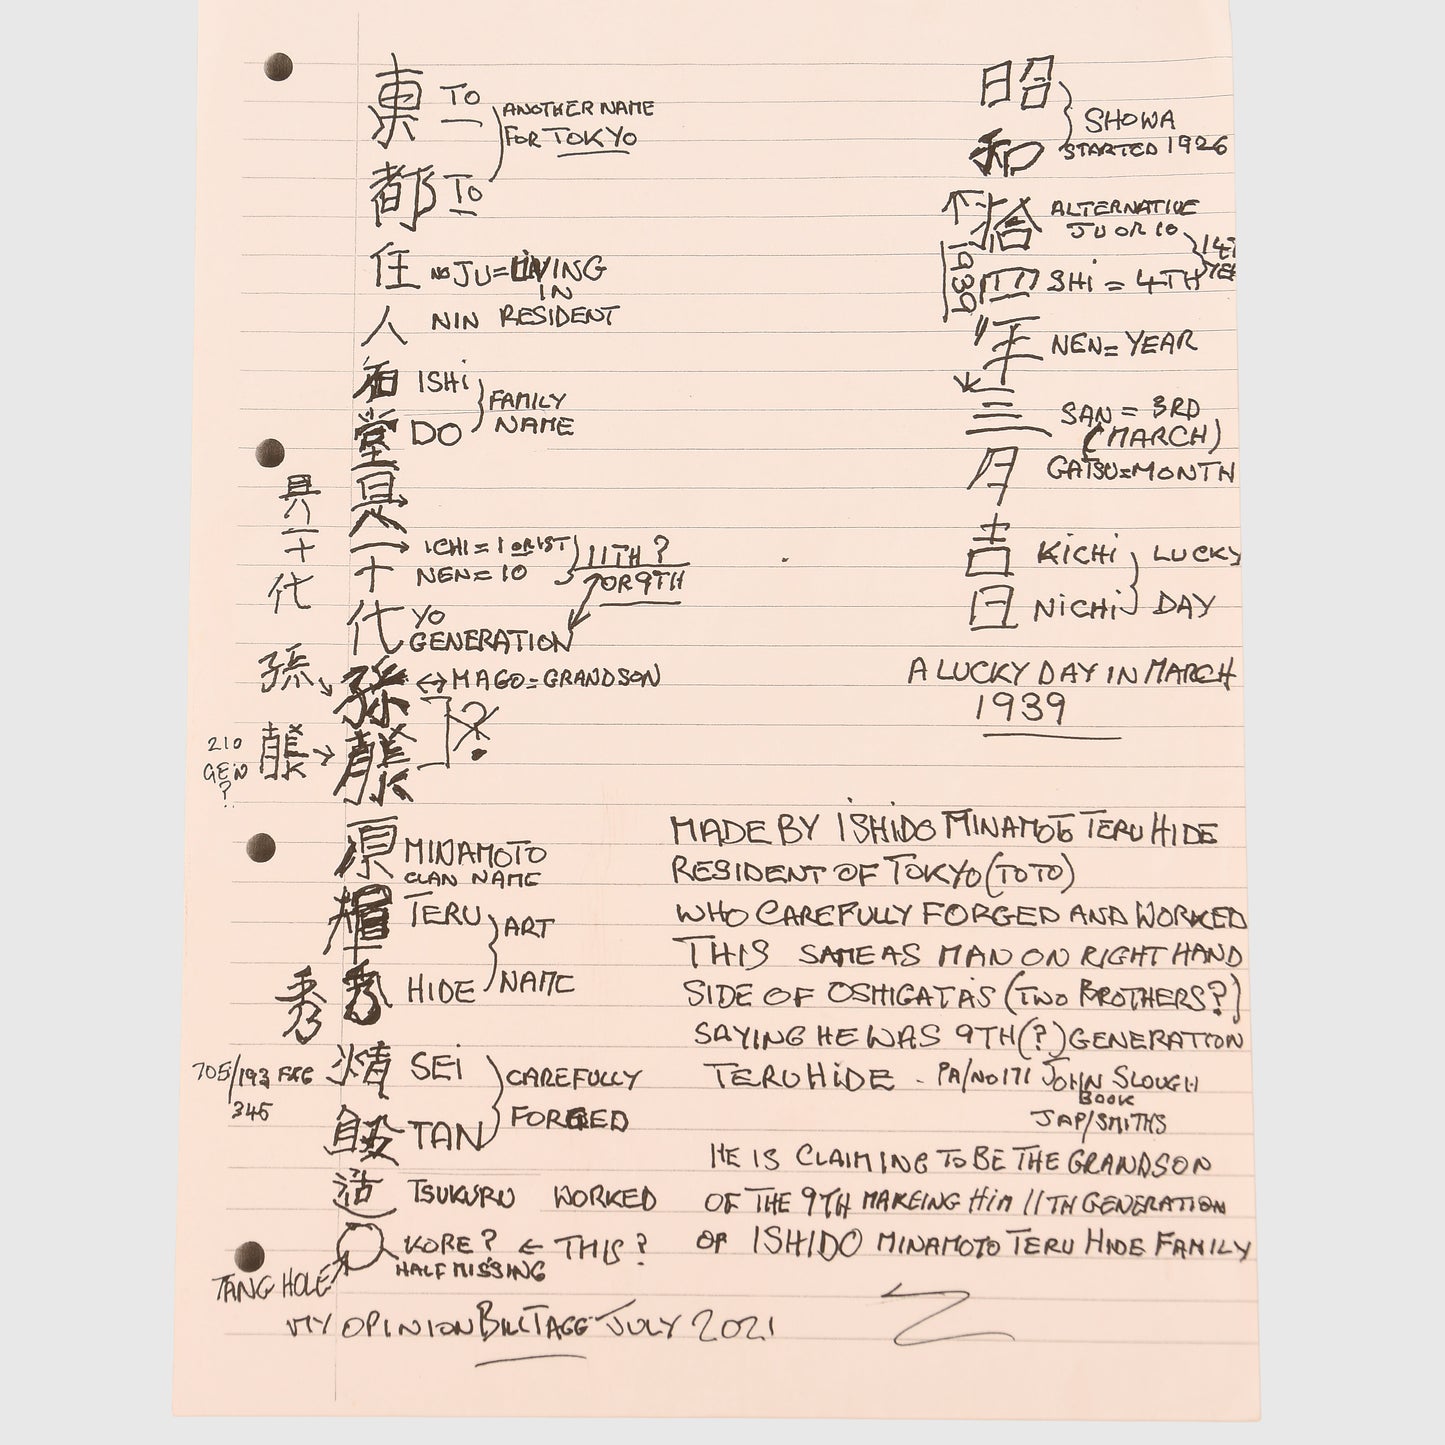 東 TO
ANOTHER NAME
FOR TOKYO
都 TO
住 NO JU = LIVING
IN
人 NIN RESIDENT
石 ISHI
FAMILY
NAME
堂 DO
是
一 ICHI = 1 OR 1ST
十 NEN = 10
11TH ?
OR 9TH
代 YO
GENERATION
具
一
十
代
孫 孫 ↔ MAGO = GRANDSON
?
210
GEN
?
原 MINAMOTO
CLAN NAME
輝 TERU
ART
NAME
秀 秀 HIDE
精 SEI
CAREFULLY
FORGED
705/193
345
鍛 TAN
造 TSUKURU WORKED
KORE? ← THIS?
HALF MISSING
TANG HOLE
MY OPINION BILL TAGG JULY 2021
昭
和
SHOWA
STARTED 1926
拾 ALTERNATIVE
JU OR 10
四 SHI = 4TH
1939
年 NEN = YEAR
三 SAN = 3RD
(MARCH)
月 GATSU = MONTH
吉 KICHI LUCKY
日 NICHI DAY
A LUCKY DAY IN MARCH
1939
MADE BY ISHIDO MINAMOTO TERU HIDE
RESIDENT OF TOKYO (TOTO)
WHO CAREFULLY FORGED AND WORKED
THIS SAME AS MAN ON RIGHT HAND
SIDE OF OSHIGATAS (TWO BROTHERS?)
SAYING HE WAS 9TH (?) GENERATION
TERU HIDE - PA/NO 171 JOHN SLOUGH
BOOK
JAP/SMITHS
HE IS CLAIMING TO BE THE GRANDSON
OF THE 9TH MAKEING HIM 11TH GENERATION
OF ISHIDO MINAMOTO TERU HIDE FAMILY